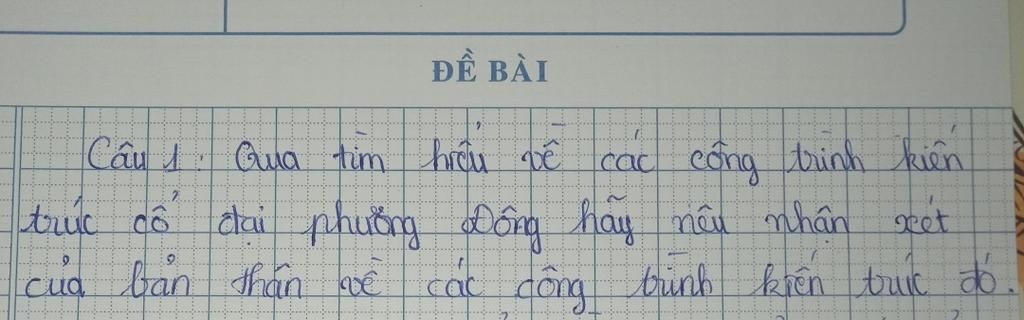 ĐỀ BÀI
Câu 1: Qua tìm hiểu về các công trình kiến
trúc cổ đại phương Đông hãy nêu nhận xét
của bản thân về các công trình kiến trúc đó.